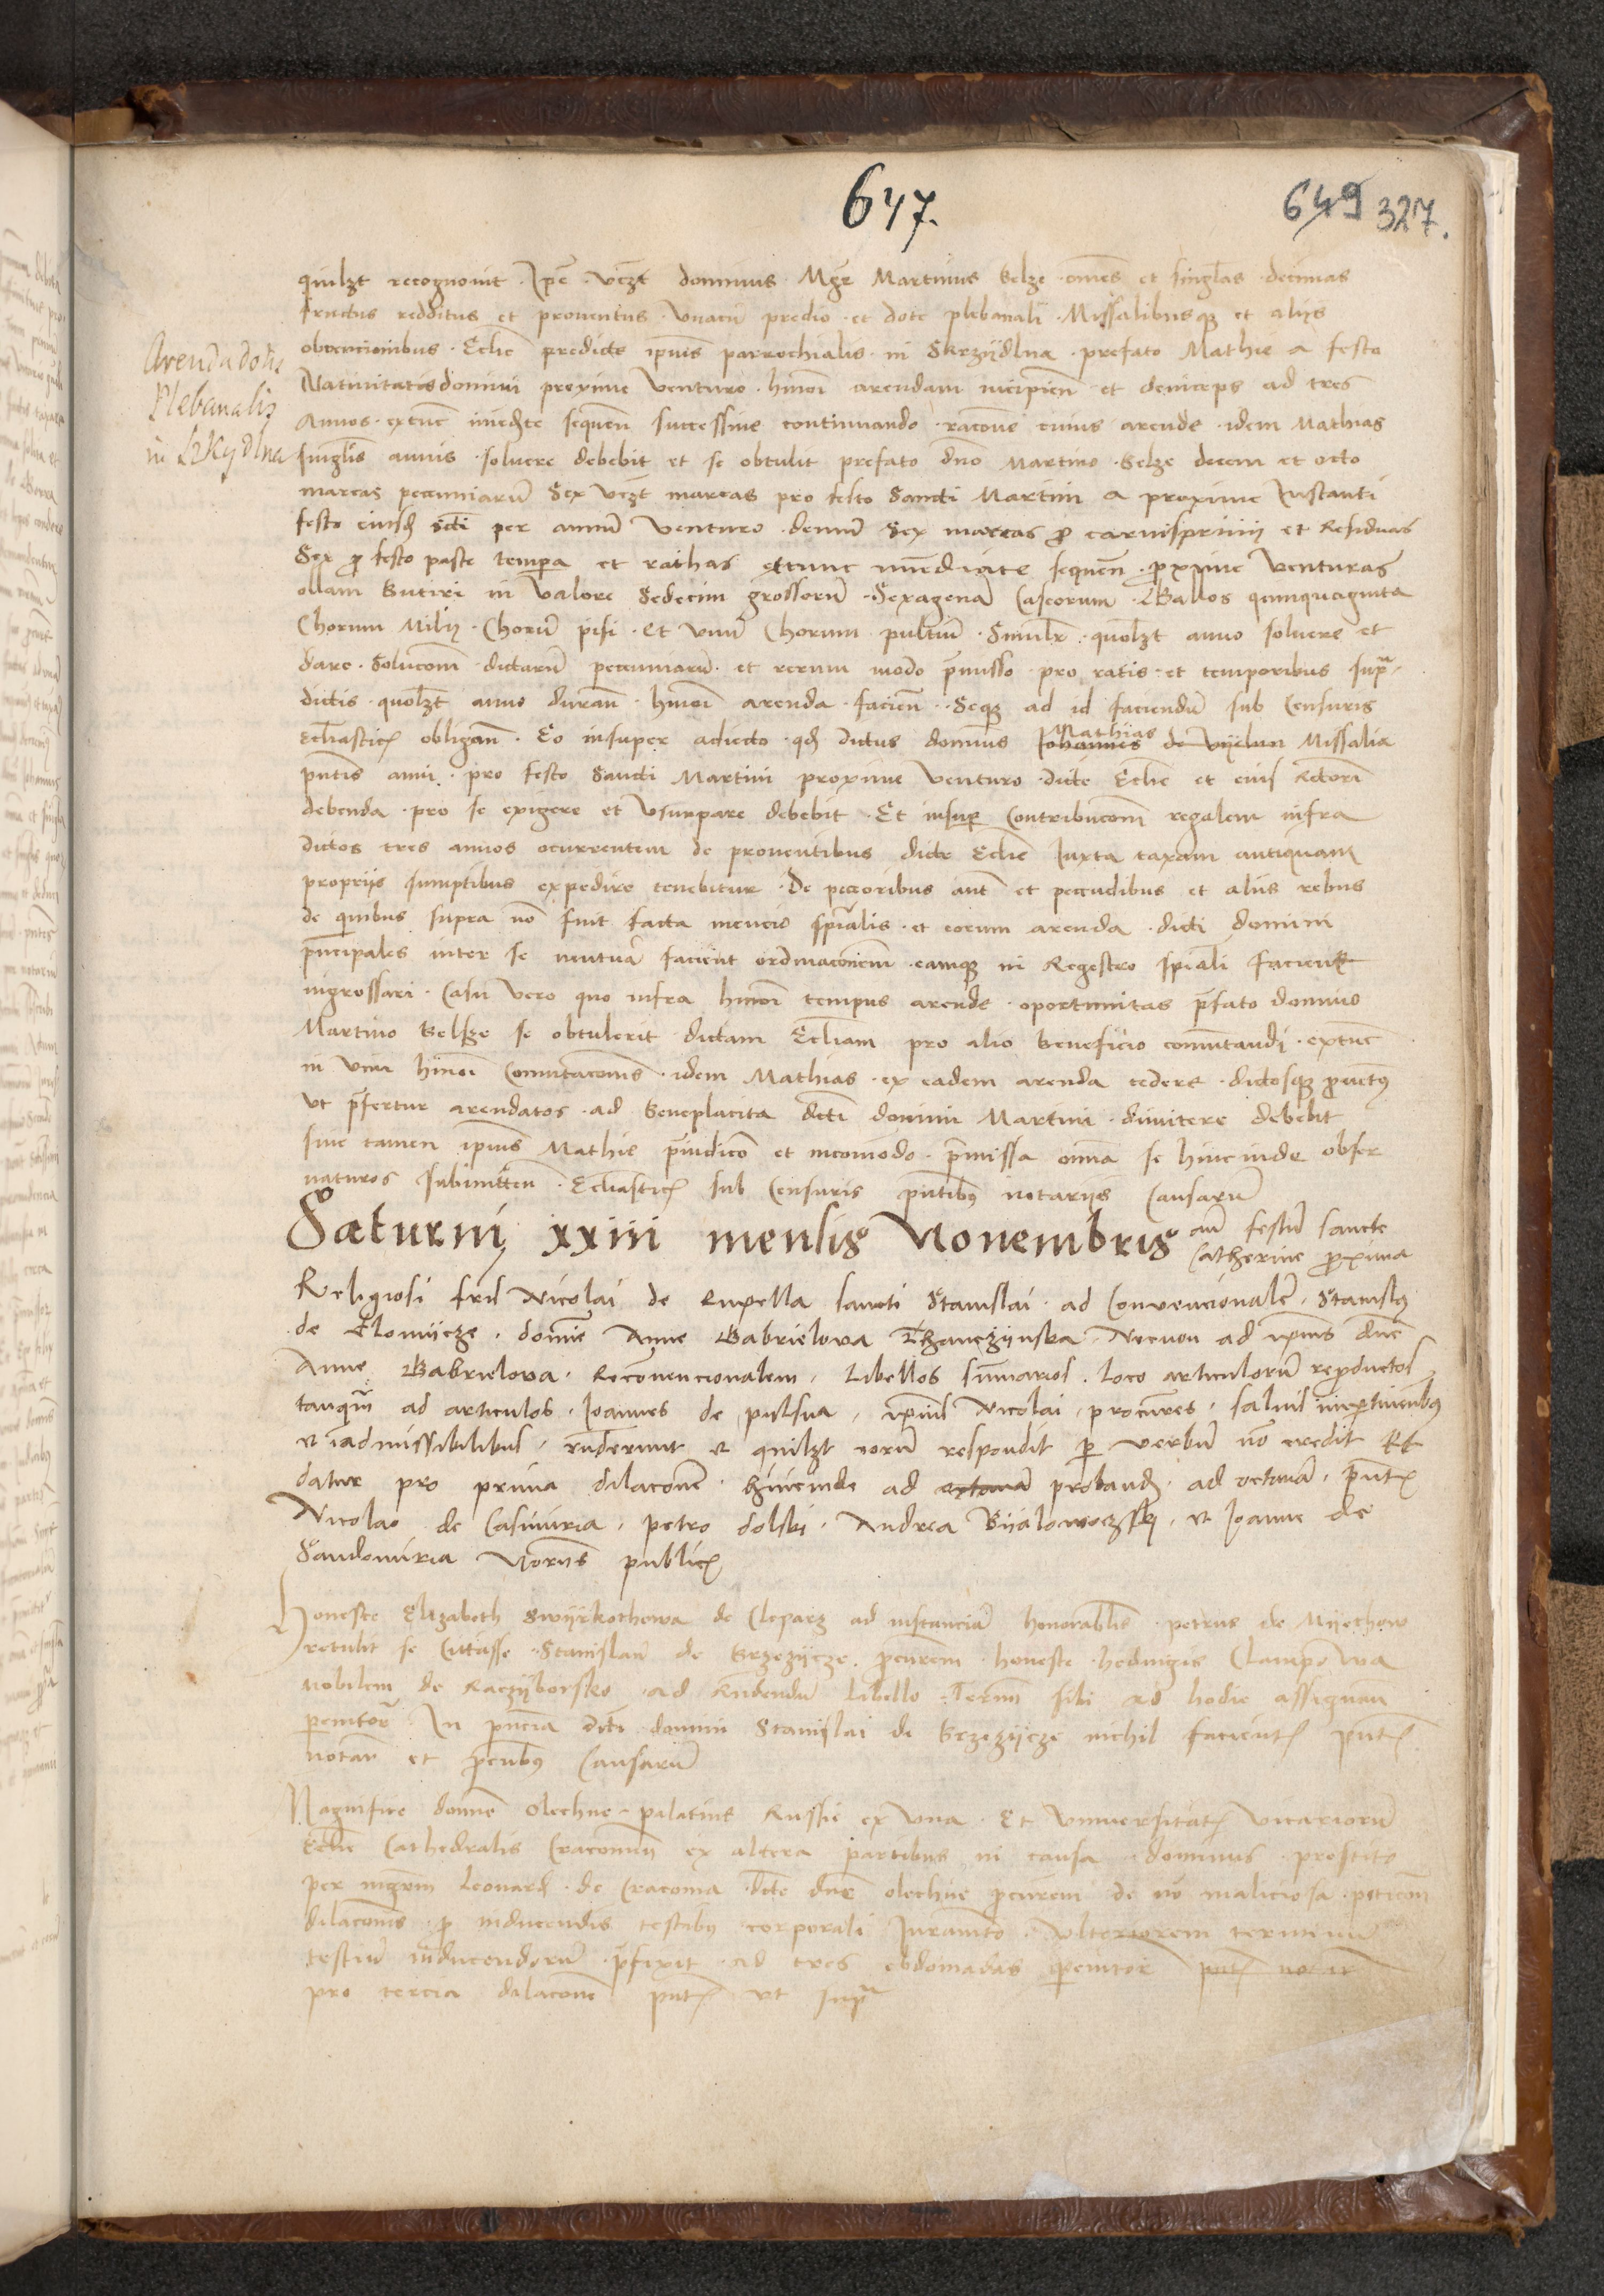 647.
649 327.
Arenda dotis
Plebanalis
in Skrzydlna
quilzt recognovit Ipse vczt dominus Mgr Martinus Belze omes et singlas decimas
fructus redditus et proventus vnacu predio et dote plebanali Missalibusqz et aliis
obvencionibus Eccie predicte ipius parrochialis in Skrzijdlna prefato Mathie a festo
Nativitatis domini proxime venturo hmoi arendam incipien et deinceps ad tres
Annos extunc imediate sequen successive continuando racone cuius arende idem Mathias
singlis annis solvere debebit et se obtulit prefato dno Martino Belze decem et octo
marcas pecuniaru Sex vczt marcas pro festo Sancti Martini a proxime Instanti
festo eiusd scti per annu venturo demu Sex marcas p carnisprivij et Residuas
Sex p festo pasce tempora et rathas extunc imediate sequen proxime venturas
ollam Butiri in valore Sedecim grossoru Sexagena Caseorum Gallos quinquaginta
Chorum Milij Choru pisi Et vnu Chorum pultiu Similr quolzt anno solvere et
dare Solucom dictaru pecuniaru et rerum modo pmisso pro ratis et temporibus supra
dictis quolzt anno duran hmoi arenda facien Seqz ad id faciendu sub Censuris
ecclasticis obligan Eo insuper adiecto qd dictus dominus Mathias Johannes de Vijelun Missalia
pntis anni pro festo Sancti Martini proxime venturo dicte Eccie et eius Rectori
debenda pro se exigere et vsurpare debebit Et insuper Contribucom regalem infra
dictos tres annos ocurrentem de proventibus dicte Eccie Iuxta taxam antiquam
proprijs sumptibus expedire tenebitur De peccoribus aut et peccudibus et aliis rebus
de quibus supra no fuit facta mencio spialis et eorum arenda dicti domini
principales inter se mutua facient ordinaconem eamqz in Regestro spiali facient
ingrossari Casu vero quo infra hmoi tempus arende oportunitas pfato domino
Martino Belze se obtulerit dictam Eccliam pro alio beneficio comutandi extunc
in vim hmoi Comutaconis idem Mathias ex eadem arenda cedere dictosqz pventus
vt pfertur arendatos ad beneplacita dicti domini Martini dimitere debebit
sine tamen ipius Mathie piudico et incomodo pmissa omia se hincinde obser
naturos submitten Ecclasticis sub Censuris pntibus notariis Causaru
Saturni xxiii mensis Novembris an festu sancte
Catherine proxima
Religiosi fris Nicolai de Capella sancti Stanislai ad Convencionale Stanislai
de Elomijcze domine Anne Gabrielova Necnon ad ipius dne
Anne Gabrielova Reconvencionalem Libellos sumarios loco articuloru reproductos
tanqua ad articulos Joannes de pilsna ipius Nicolai procures salvis impertinentibus
et iadmissibilibus runderunt et quilzt eoru respondit per verbu no credit Et
datur pro prima dilacone hincinde ad octava proband ad octava pntibus
Nicolao de Casimiria petro dolski Andrea Bijalowoczski et Joanne de
Sandomiria Noriis publicis
Honeste Elizabeth Swijrkothowa de Cleparz ad instancia honorabilis petrus de Mijechow
retulit se Citasse Stanislau de Brzezijcze procurem honeste hedwigis Clamporwa
nobilem de Raczijborsko ad Rndendu Libello Termi sibi ad hodie assignan
peremtor In pncia dicti domini Stanislai de Brzezijcze nichil facientis pntibus
notar et pcuribus Causaru
Magnifice domine Olechne palatine Russie ex vna Et vniversitatis vicarioru
Eccle Cathedralis Cracovien ex altera partibus in causa dominus prestito
per mgrum Leonard de Cracovia dicte dne olechne pcurem de no maliciosa peticon
dilaconis p inducendis testibus corporali Iuramto vlteriorem terminum
testiu inducendoru pfixit ad tres ebdomadas peremtor pntibus
pro tercia dilacone pntibus vt supra